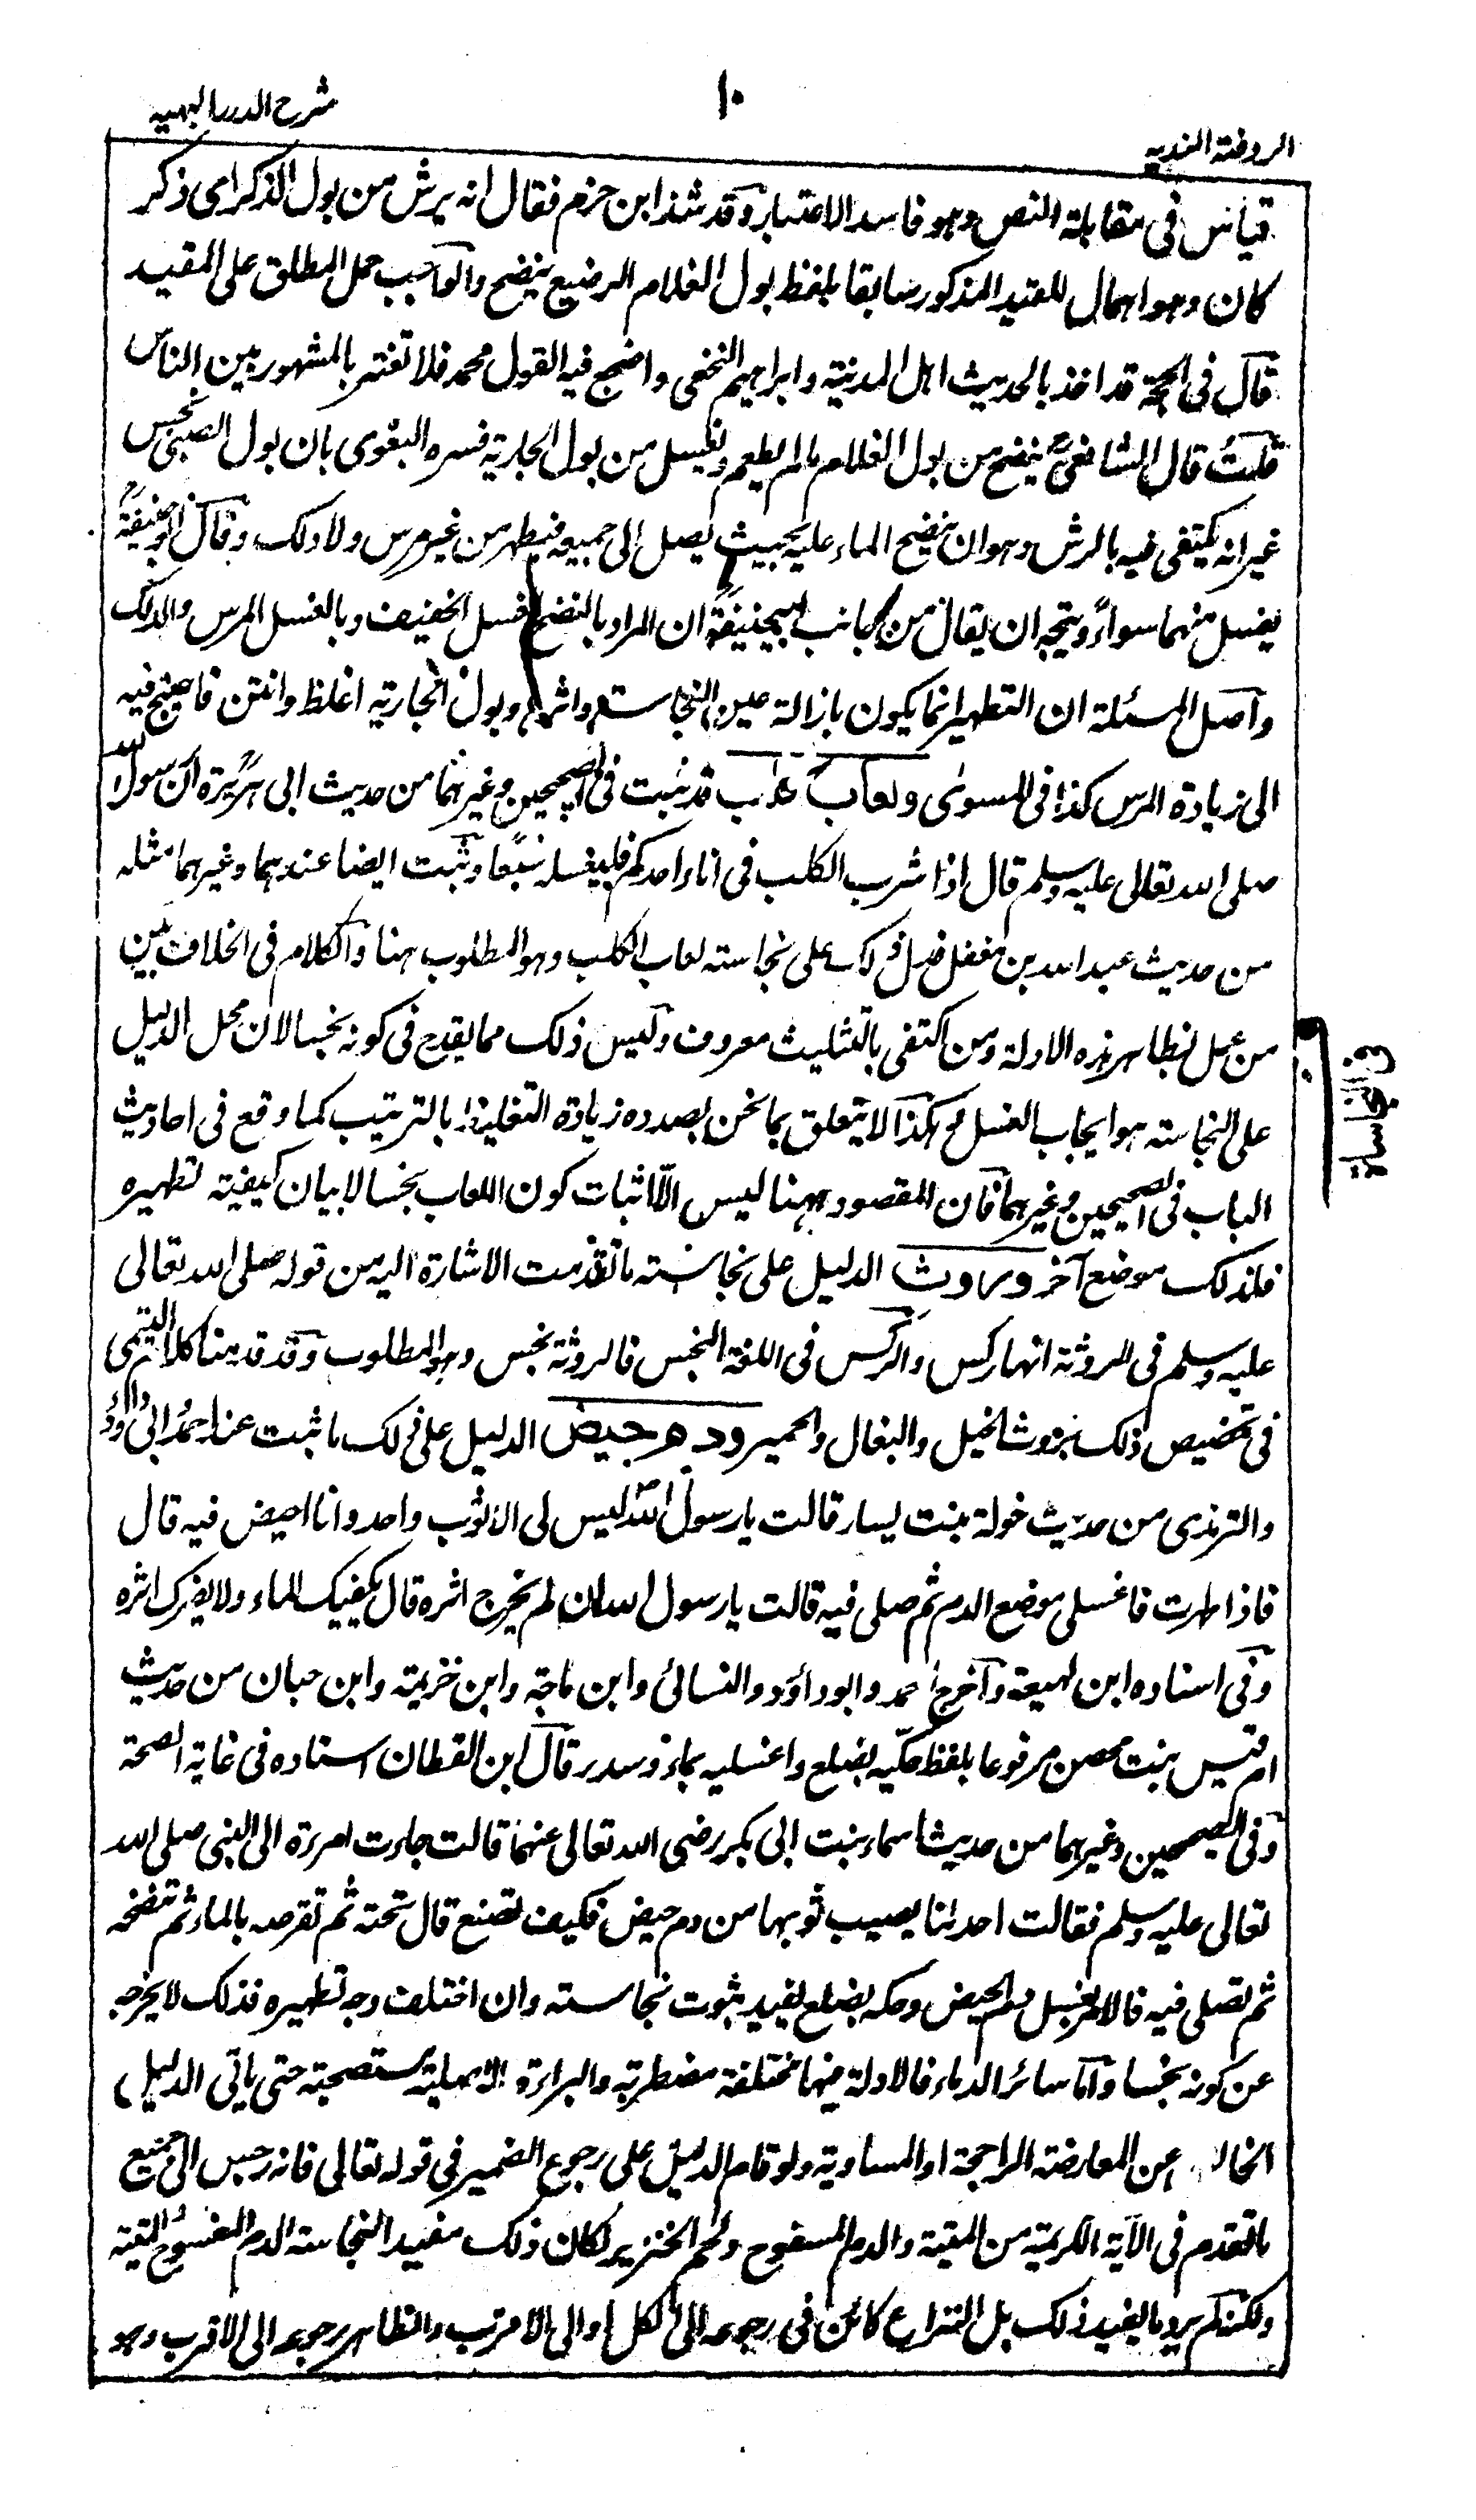 الروضة الندية
١٠
شرح الدرر البهية
قياس في مقابلة النص وهو فاسد الاعتبار وقد شذ ابن حزم فقال انه يرش من بول الذكر اى ذكر
كان وهو اهمال للقيد المذكور سابقا بلفظ بول الغلام الرضيع ينضح والواجب حمل المطلق على المقيد
قال في الحجة قد اخذ بالحديث اهل المدينة وابراهيم النخعى واضجع فيه القول محمد فلا تغتر بالمشهور بين الناس
قلت قال الشافعى ينضح من بول الغلام ما لم يطعم ويغسل من بول الجارية فسره البغوى بان بول الصبى نجس
غير انه يكتفى فيه بالرش وهو ان ينضح الماء عليه بحيث يصل الى جميعه فيطهر من غير مرس ولا دلك وقال ابو حنيفة
يغسل منهما سواء ويتجه ان يقال من جانب ابيحنيفة ان المراد بالنضح الغسل الخفيف وبالغسل المرس والدلك
واصل المسئلة ان التطهير انما يكون بازالة عين النجاسة واثرها وبول الجارية اغلظ وانتن فاحتيج فيه
الى زيادة المرس كذا فى المسوى ولعاب كلب قد ثبت في الصحيحين وغيرهما من حديث ابى هريرة ان رسول الله
صلى الله تعالى عليه وسلم قال اذا شرب الكلب في اناء احدكم فليغسله سبعا وثبت ايضا عندهما وغيرهما مثله
من حديث عبد الله بن مغفل فدل ذلك على نجاسة لعاب الكلب وهو المطلوب هنا والكلام في الخلاف بين
من عمل بظاهر هذه الادلة ومن اكتفى بالتثليث معروف وليس ذلك مما يقدح في كونه نجسا لان محل الدليل
على النجاسة هو ايجاب الغسل وهكذا لا يتعلق بما نحن بصدده زيادة التغليظ بالترتيب كما وقع في احاديث
الباب في الصحيحين وغيرهما فان المقصود ههنا ليس الا اثبات كون اللعاب نجسا لا بيان كيفية تطهيره
فلذلك موضع آخر وروث الدليل على نجاسته ما تقدمت الاشارة اليه من قوله صلى الله تعالى
عليه وسلم في الروثة انها ركس والركس في اللغة النجس فالروثة نجس وهو المطلوب وقد قدمنا كلام التيمى
في تخصيص ذلك بروث الخيل والبغال والحمير ودم حيض الدليل على ذلك ما ثبت عند احمد وابى داود
والترمذى من حديث خولة بنت يسار قالت يا رسول الله ليس لى الا ثوب واحد وانا احيض فيه قال
فاذا طهرت فاغسلى موضع الدم ثم صلى فيه قالت يا رسول الله ان لم يخرج اثره قال يكفيك الماء ولا يضرك اثره
وفى اسناده ابن لهيعة واخرج احمد وابو داؤد والنسائى وابن ماجة وابن خزيمة وابن حبان من حديث
ام قيس بنت محصن مرفوعا بلفظ حكيه بضلع واغسليه بماء وسدر قال ابن القطان اسناده في غاية الصحة
وفى الصحيحين وغيرهما من حديث اسماء بنت ابى بكر رضى الله تعالى عنهما قالت جاءت امرءة الى النبى صلى الله
تعالى عليه وسلم فقالت احدانا يصيب ثوبها من دم حيض فكيف تصنع قال تحته ثم تقرصه بالماء ثم تنضحه
ثم تصلى فيه فالامر بغسل دم الحيض وحكه بضلع يفيد ثبوت نجاسته وان اختلف وجه تطهيره فذلك لا يخرجه
عن كونه نجسا واما سائر الدماء فالادلة فيها مختلفة مضطربة والبراءة الاصلية مستصحبة حتى ياتى الدليل
الخالص عن المعارضة الراجحة او المساوية ولو قام الدليل على رجوع الضمير في قوله تعالى فانه رجس الى جميع
ما تقدم في الآية الكريمة من الميتة والدم المسفوح ولحم الخنزير لكان ذلك مفيدا لنجاسة الدم المسفوح والميتة
ولكن لم يرد ما يفيد ذلك بل النزاع كائن في رجوعه الى الكل او الى الاقرب والظاهر رجوعه الى الاقرب وهو